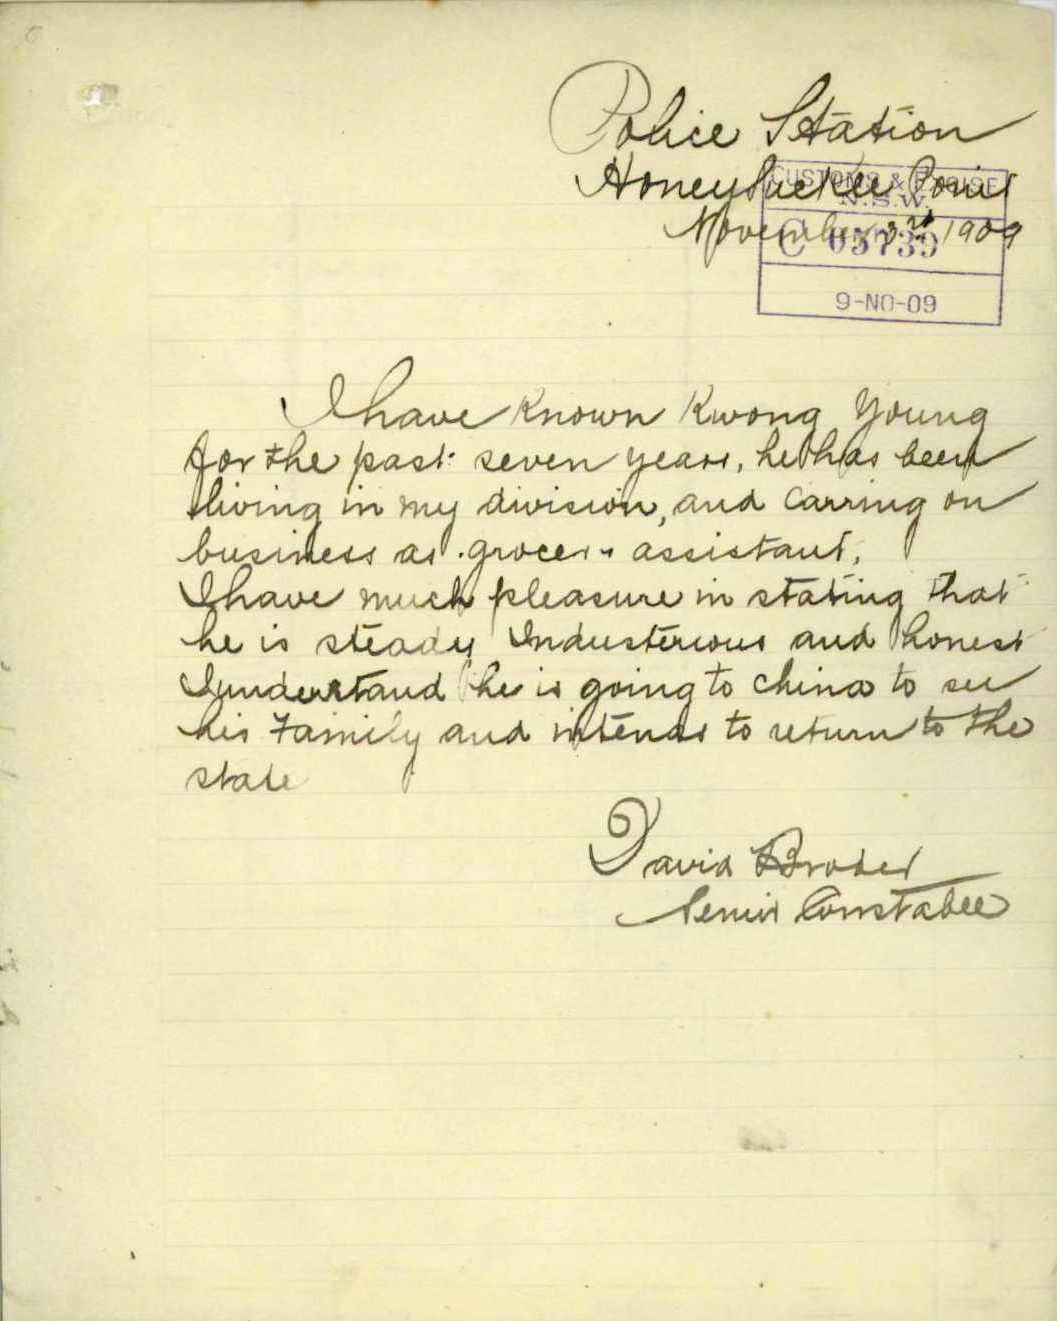 Police Station
Honeysuckle Point
November 3rd 1909
CUSTOMS & EXCISE
N.S.W.
C 05739
9-NO-09
I have Known Kwong Young
for the past seven years, he has been
living in my division, and Carring on
business as grocers assistant,
I have much pleasure in stating that
he is steady Industerious and honest
I understand he is going to China to see
his Family and intends to return to the
state
David
Senior Constable